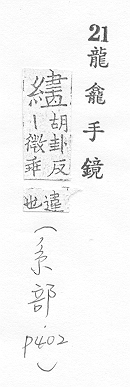 21 龍龕手鏡
繣
胡卦反
丨徽乖
違
也
(糸部．p402)